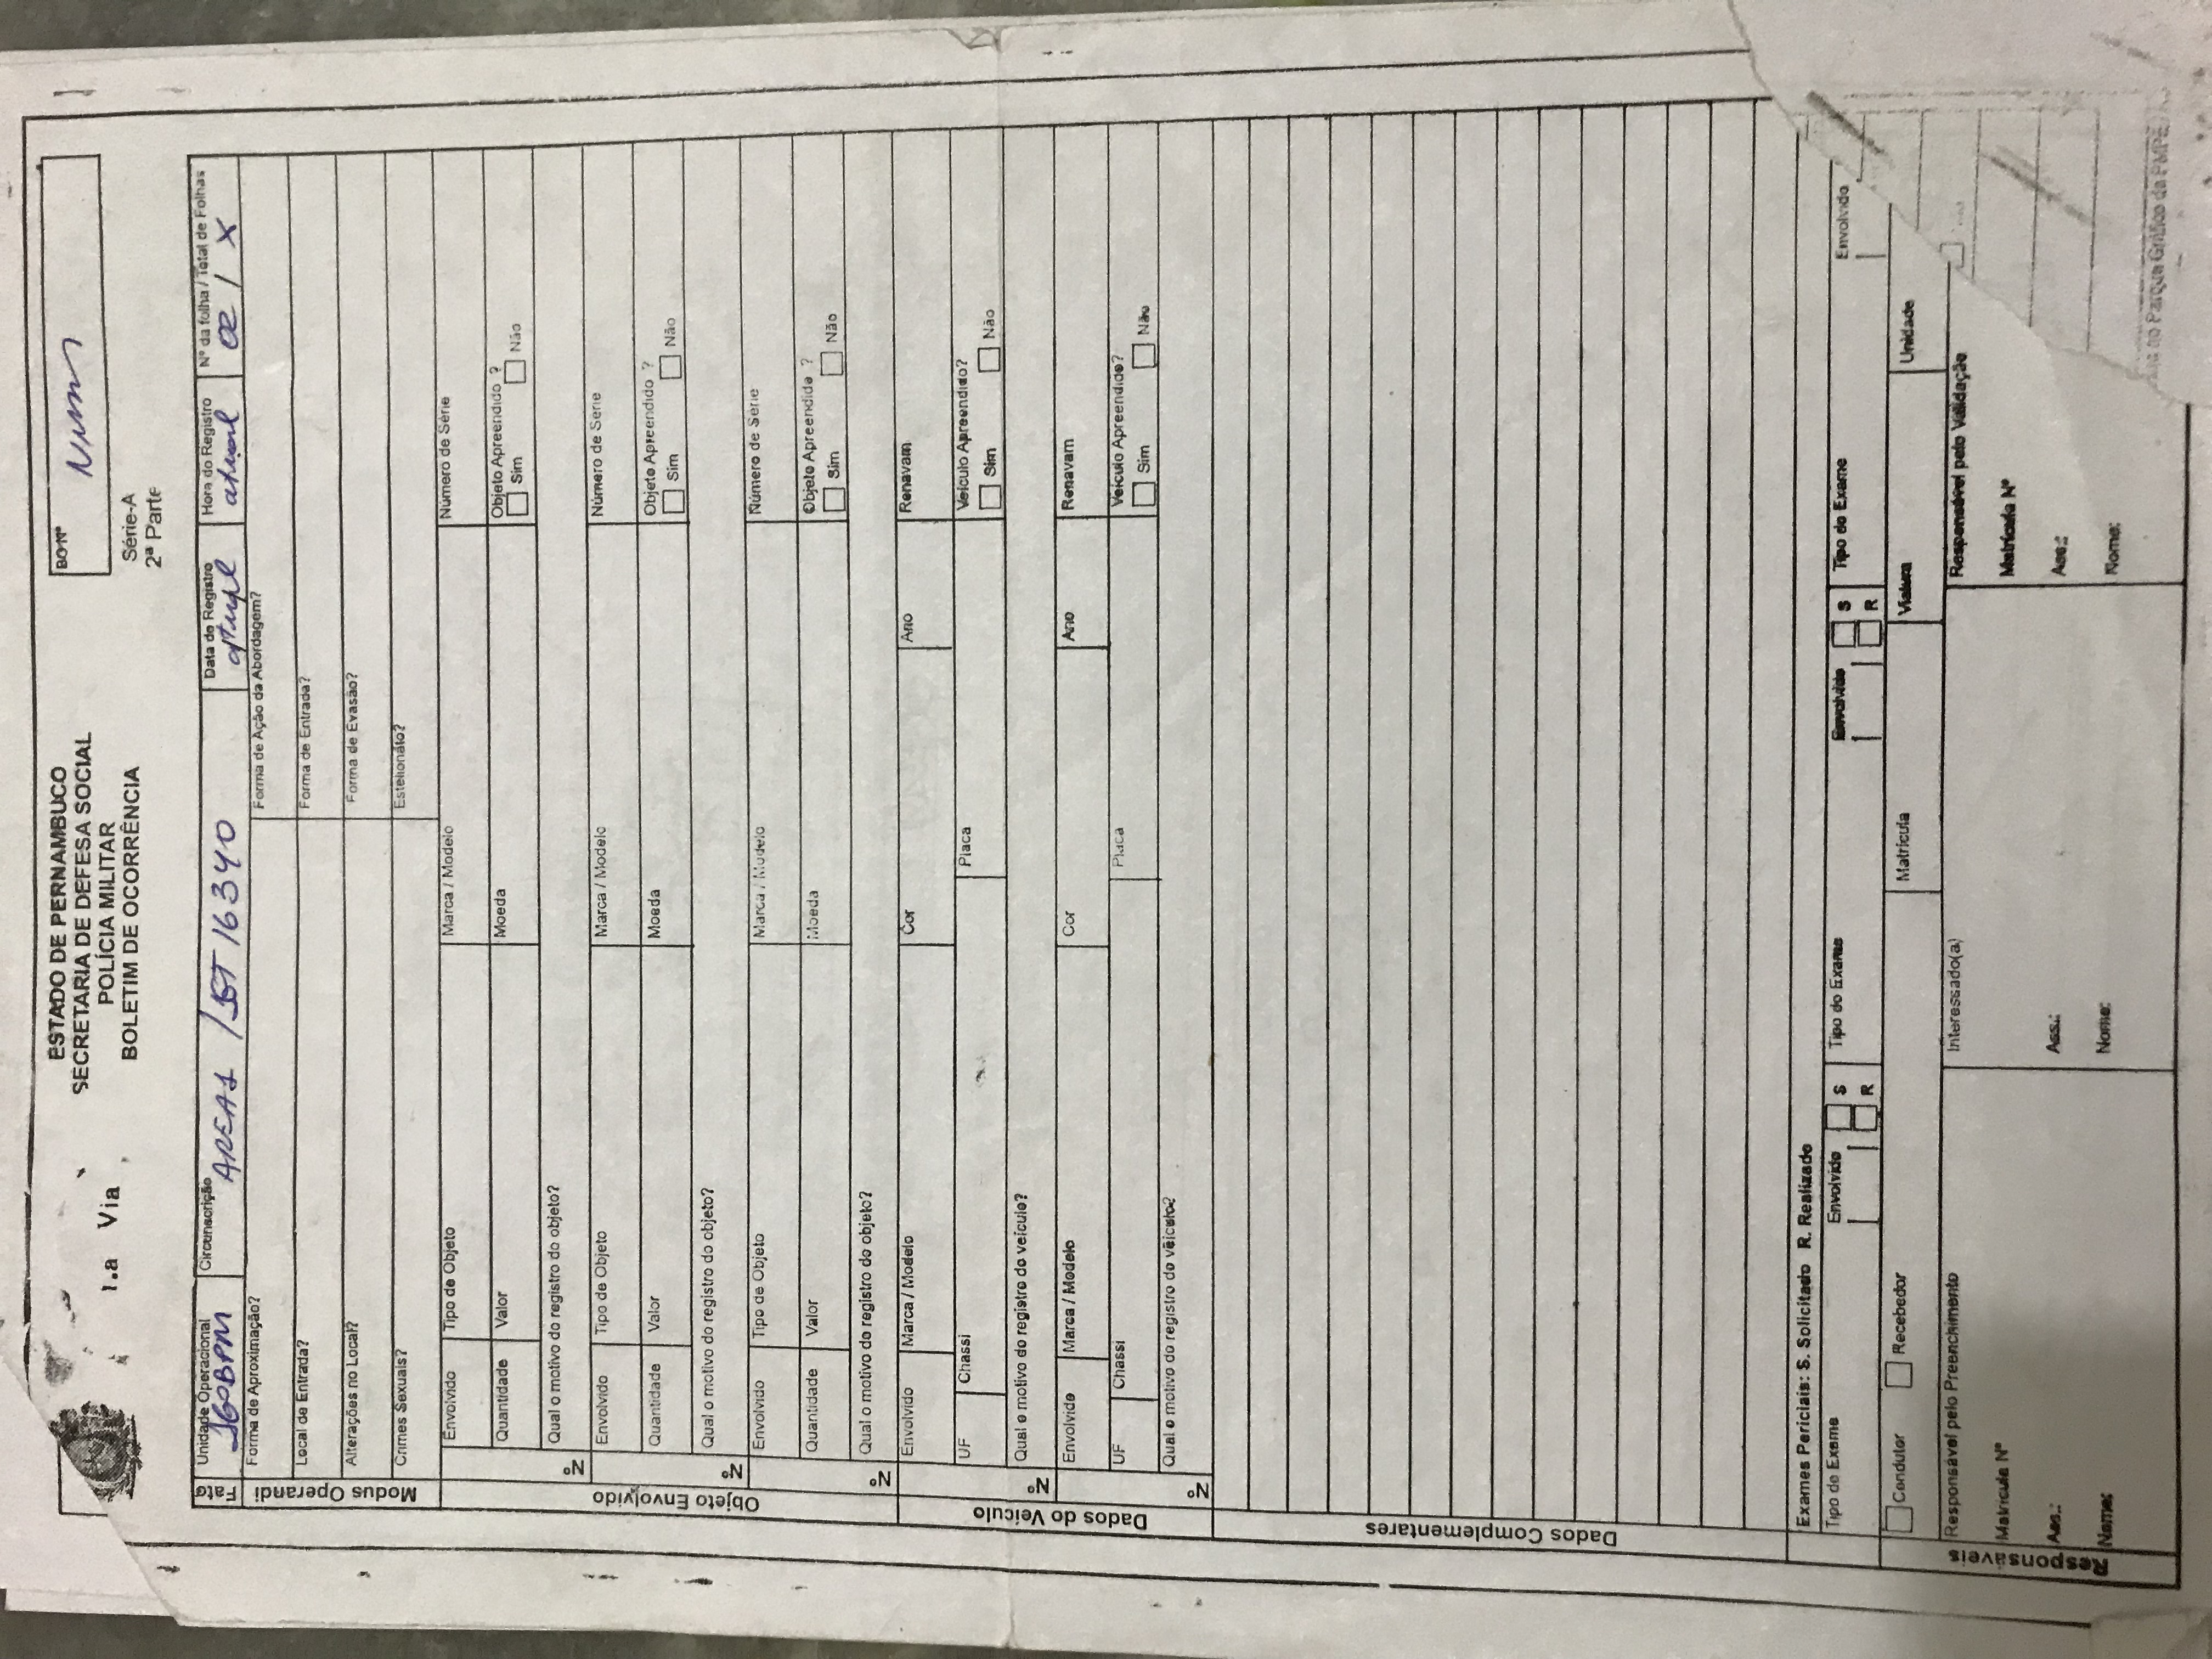 1.a Via
ESTADO DE PERNAMBUCO
SECRETARIA DE DEFESA SOCIAL
POLÍCIA MILITAR
BOLETIM DE OCORRÊNCIA
BO Nº
Série-A
2ª Parte
Fato
Unidade Operacional Circunscrição Data do Registro Hora do Registro Nº da folha / Total de Folhas
16ºBPM AREA1 / 1ST 16340 atual atual 02 / X
Modus Operandi
Forma de Aproximação? Forma de Ação da Abordagem?
Local de Entrada? Forma de Entrada?
Alterações no Local? Forma de Evasão?
Crimes Sexuais? Estelionato?
Objeto Envolvido
Envolvido Tipo de Objeto Marca / Modelo Número de Série
Quantidade Valor Moeda Objeto Apreendido ?
Sim Não
Qual o motivo do registro do objeto?
Nº
Envolvido Tipo de Objeto Marca / Modelo Número de Série
Quantidade Valor Moeda Objeto Apreendido ?
Sim Não
Qual o motivo do registro do objeto?
Nº
Envolvido Tipo de Objeto Marca / Modelo Número de Série
Quantidade Valor Moeda Objeto Apreendido ?
Sim Não
Qual o motivo do registro do objeto?
Nº
Dados do Veículo
Envolvido Marca / Modelo Cor Ano Renavam
UF Chassi Placa Veículo Apreendido?
Sim Não
Qual o motivo do registro do veículo?
Nº
Envolvido Marca / Modelo Cor Ano Renavam
UF Chassi Placa Veículo Apreendido?
Sim Não
Qual o motivo do registro do veículo?
Nº
Dados Complementares
Exames Periciais: S. Solicitado R. Realizado
Tipo do Exame Envolvido S Tipo do Exame Envolvido S Tipo do Exame Envolvido
R R
Responsáveis
Condutor Recebedor Matrícula Viatura Unidade
Responsável pelo Preenchimento Interessado(a) Responsável pelo Validação
Matrícula Nº Matrícula Nº
Ass.: Ass.: Ass.:
Nome: Nome: Nome:
no Parque Gráfico da PMPE